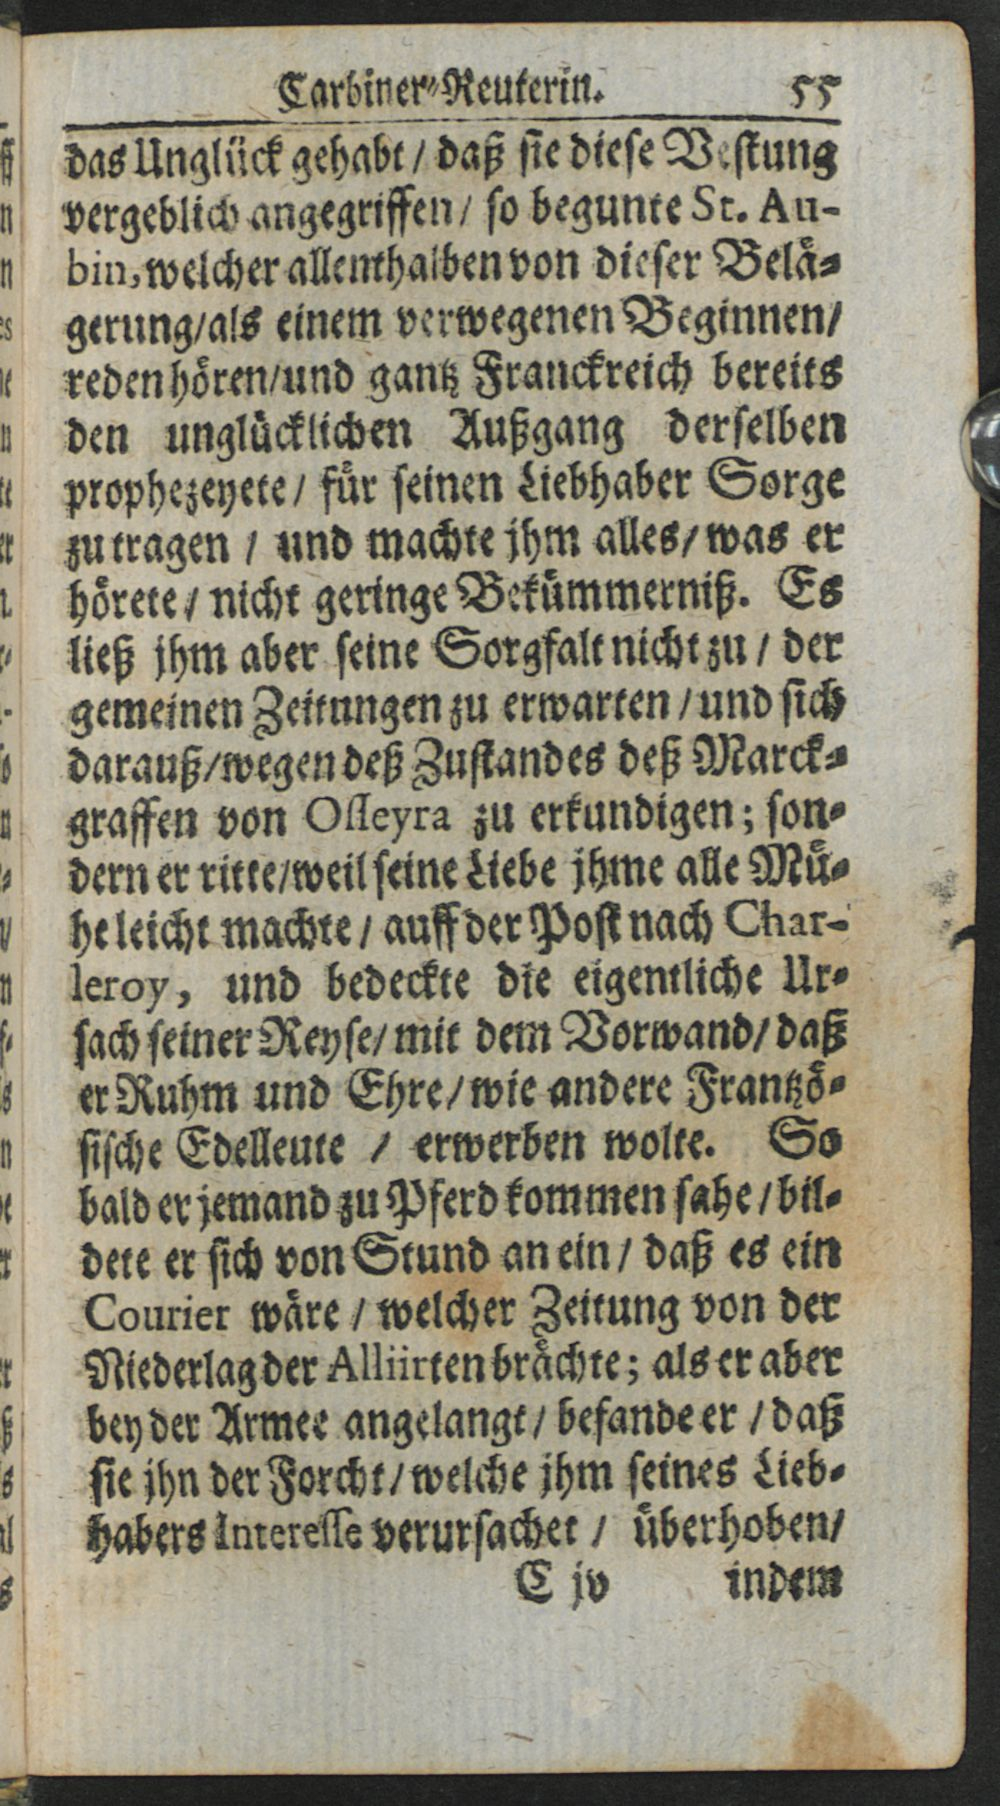 Carbiner-Reuterin. 55
das Unglück gehabt / daß sie diese Vestung
vergeblich angegriffen / so begunte St. Au-
bin, welcher allenthalben von dieser Belä-
gerung / als einem verwegenen Beginnen /
reden hören / und gantz Franckreich bereits
den unglücklichen Außgang derselben
prophezeyete / für seinen Liebhaber Sorge
zu tragen / und machte jhm alles / was er
hörete / nicht geringe Bekümmerniß. Es
ließ jhm aber seine Sorgfalt nicht zu / der
gemeinen Zeitungen zu erwarten / und sich
darauß / wegen deß Zustandes deß Marck-
graffen von Osseyra zu erkundigen; son-
dern er ritte / weil seine Liebe jhme alle Mü-
he leicht machte / auff der Post nach Char-
leroy, und bedeckte die eigentliche Ur-
sach seiner Reyse / mit dem Vorwand / daß
er Ruhm und Ehre / wie andere Frantzö-
sische Edelleute / erwerben wolte. So
bald er jemand zu Pferd kommen sahe / bil-
dete er sich von Stund an ein / daß es ein
Courier wäre / welcher Zeitung von der
Niederlag der Alliirten brächte; als er aber
bey der Armee angelangt / befande er / daß
sie jhn der Forcht / welche jhm seines Lieb-
habers Interesse verursachet / überhoben /
C jv indem